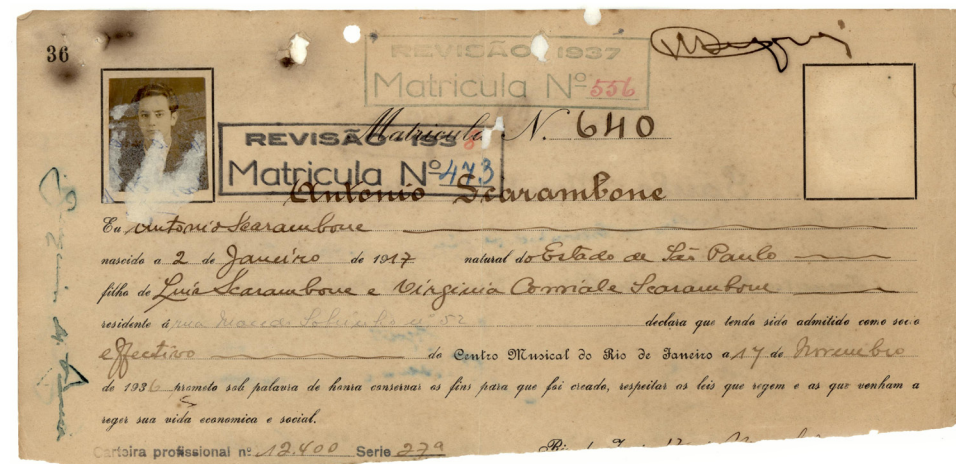 36
REVISÃO 1937
Matricula Nº 556
Matricula N. 640
REVISÃO 1938
Matricula Nº 473
Antonio Scarambone
Eu Antonio Scarambone
nascido a 2 de Janeiro de 1917 natural do Estado de São Paulo
filho de Luis Scarambone e Virginia Scarambone
residente á rua Macedo Sobrinho nº 52 declara que tendo sido admitido como socio
effectivo do Centro Musical do Rio de Janeiro a 17 de Novembro
de 1936 prometo sob palavra de honra conservar os fins para que foi creado, respeitar as leis que regem e as que venham a
reger sua vida economica e social.
Carteira profissional nº 12.400 Serie 27ª